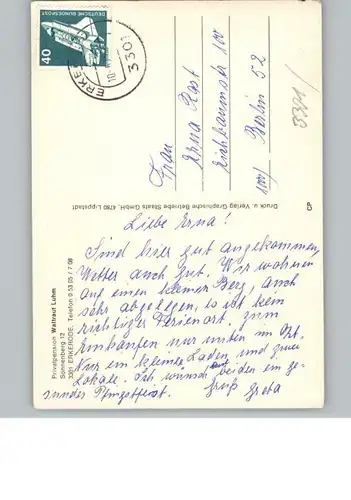 DEUTSCHE BUNDESPOST
40
ERKE
3301
Frau
Erna Rost
Berlin 52
Druck u. Verlag Graphische Betriebe Staats GmbH, 4780 Lippstadt
CP
Liebe Erna!
Sind hier gut angekommen,
Wetter auch gut. Wir wohnen
auf einen kleinen Berg, auch
sehr abgelegen, es ist kein
richtiger Ferienort. Zum
Einkaufen nur unten im Ort.
Nur ein kleine Laden und zwei
Lokale. Ich wünsch beiden ein ge-
sunder Pfingstfest. Gruß Greta
Privatpension Waltraut Luhm
Sonnenberg 12
3301 ERKERODE, Telefon 0 53 05 / 7 08